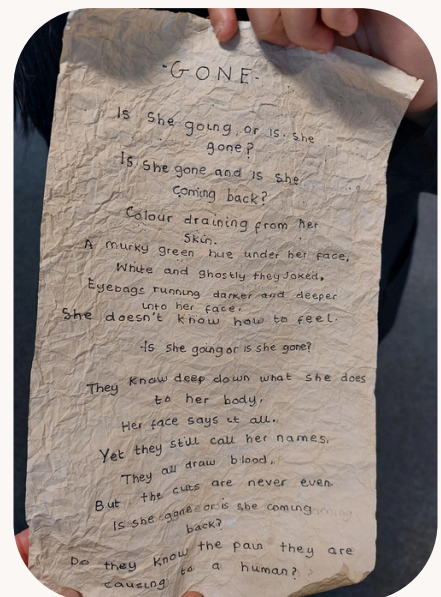 -GONE-
Is She going, or is she
gone?
Is She gone and is she
coming back?
Colour draining from her
Skin.
A murky green hue under her face,
White and ghostly they joked,
Eyebags running darker and deeper
into her face.
She doesn't know how to feel.
Is she going or is she gone?
They know deep down what she does
to her body,
Her face says it all.
Yet they still call her names,
They all draw blood,
But the cuts are never even.
Is she gone or is she coming
back?
Do they know the pain they are
causing to a human?